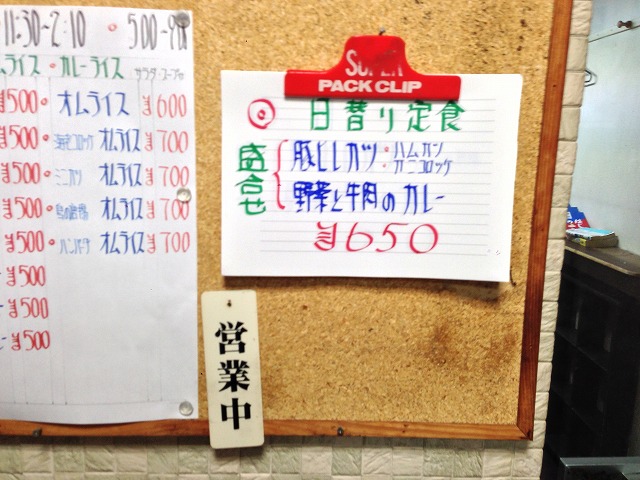 11:30~2:10 ・ 500~
ライス・カレーライス サラダ・スープ付
¥500・オムライス ¥600
¥500・海老コロッケ オムライス ¥700
¥500・ミニカツ オムライス ¥700
¥500・ オムライス ¥700
¥500・ハンバーグ オムライス ¥700
¥500
¥500
¥500
SUPER
PACK CLIP
◎ 日替り定食
盛合せ
豚ヒレカツ・ハムカツ
・カニコロッケ
野菜と牛肉のカレー
¥650
営業中